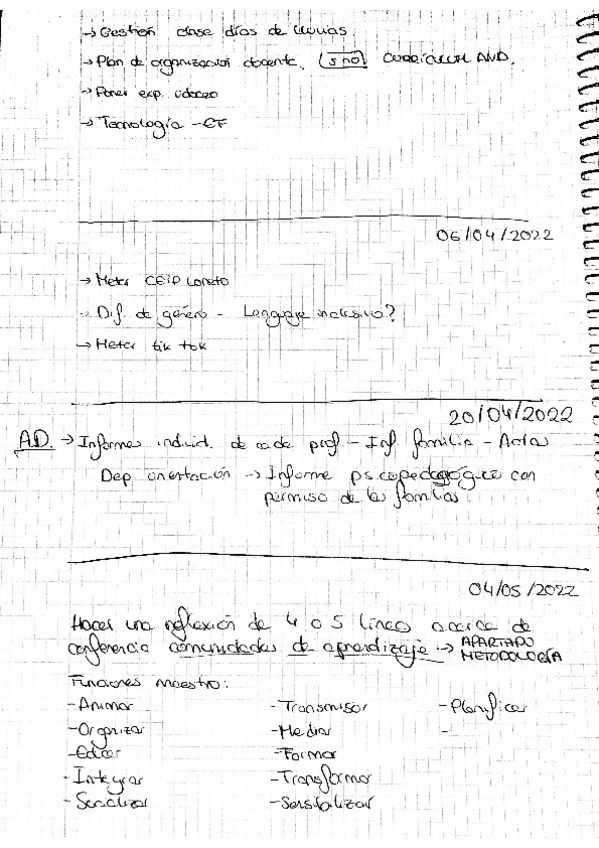 → Gestión clase días de lluvias.
→ Plan de organización docente. (5 no) CURRÍCULUM AND.
→ Poner exp. idoceo
→ Tecnología - EF
06/04/2022
→ Meter CEIP Loreto
→ Dif. de género - Lenguaje inclusivo?
→ Meter tik tok
20/04/2022
A.D. → Informes individ. de cada prof - Inf. familia - Actas
Dep orientación → Informe psicopedagógico con
permiso de las familias.
04/05/2022
Hacer una reflexión de 4 o 5 líneas acerca de
conferencia comunidades de aprendizaje → APARTADO
METODOLOGÍA
Funciones maestro:
- Animar - Transmisor - Planificar
- Organizar - Mediar -
- Educar - Formar
- Integrar - Transformar
- Socializar - Sensibilizar